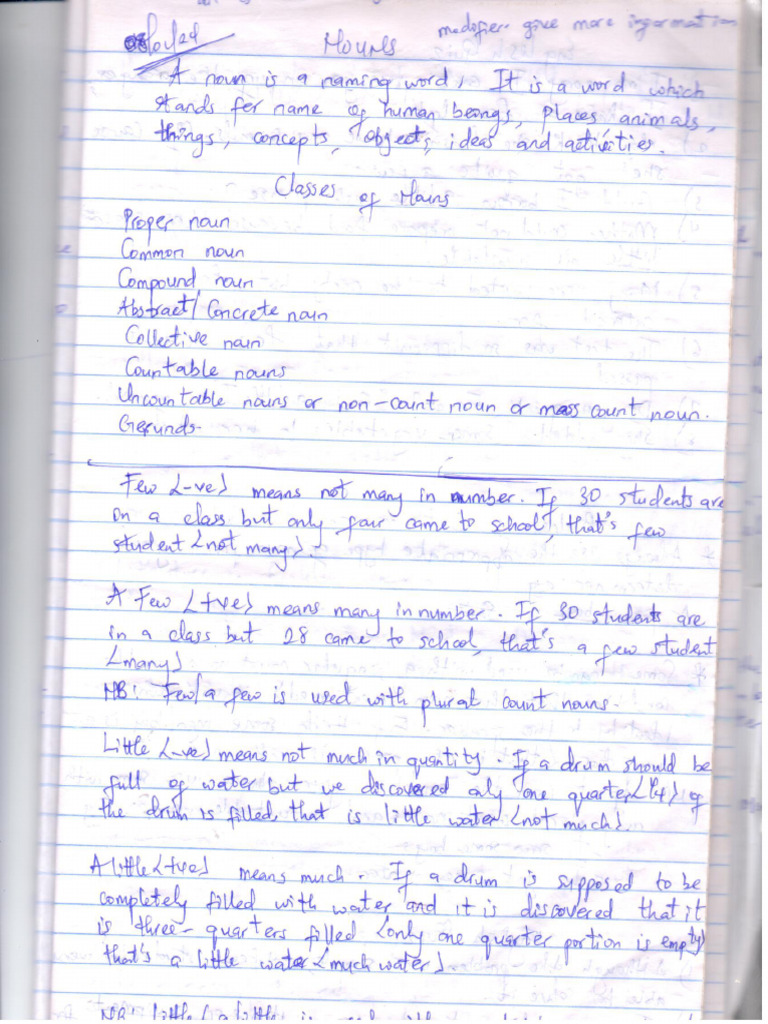 modifier give more information
Nouns
A noun is a naming word, It is a word which
stands for name of human beings, places animals,
things, concepts, objects, ideas and activities.
Classes of Nouns
Proper noun
Common noun
Compound noun
Abstract/Concrete noun
Collective noun
Countable nouns
Uncountable nouns or non-count noun or mass count noun.
Gerunds.
Few <-ve> means not many in number. If 30 students are
in a class but only four came to school, that's few
student <not many>.
A Few <+ve> means many in number. If 30 students are
in a class but 28 came to school, that's a few student
<many>
NB: Few/a few is used with plural count nouns.
Little <-ve> means not much in quantity. If a drum should be
full of water but we discovered only one quarter <1/4> of
the drum is filled, that is little water <not much>.
A little <+ve> means much. If a drum is supposed to be
completely filled with water and it is discovered that it
is three-quarters filled <only one quarter portion is empty>
that's a little water <much water>
NB: little/a little is